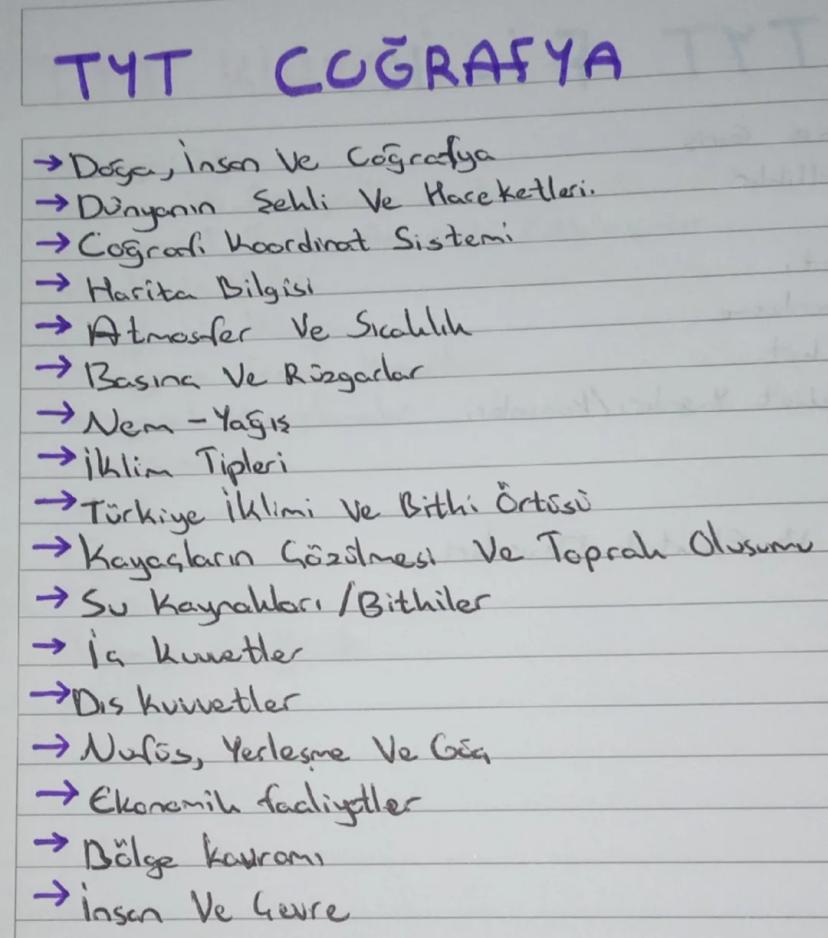 TYT COĞRAFYA
→ Doğa, İnsan Ve Coğrafya
→ Dünyanın Şekli Ve Hareketleri.
→ Coğrafi Koordinat Sistemi
→ Harita Bilgisi
→ Atmosfer Ve Sıcaklık
→ Basınç Ve Rüzgarlar
→ Nem - Yağış
→ İklim Tipleri
→ Türkiye İklimi Ve Bitki Örtüsü
→ Kayaçların Çözülmesi Ve Toprak Olusumu
→ Su Kaynakları / Bitkiler
→ İç Kuvvetler
→ Dıs Kuvvetler
→ Nufüs, Yerleşme Ve Göç
→ Ekonomik faaliyetler
→ Bölge Kavramı
→ İnsan Ve Çevre